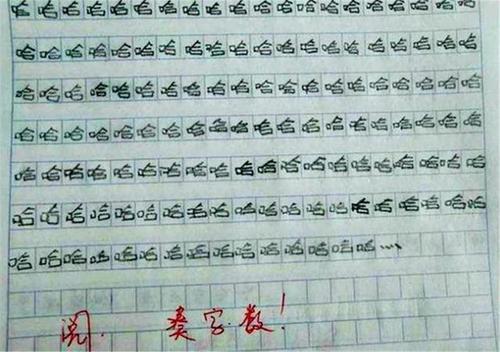 哈哈哈哈哈哈哈哈哈哈哈哈哈哈哈哈哈哈哈哈
哈哈哈哈哈哈哈哈哈哈哈哈哈哈哈哈哈哈哈哈
哈哈哈哈哈哈哈哈哈哈哈哈哈哈哈哈哈哈哈哈
哈哈哈哈哈哈哈哈哈哈哈哈哈哈哈哈哈哈哈哈
哈哈哈哈哈哈哈哈哈哈哈哈哈哈哈哈哈哈哈哈
哈哈哈哈哈哈哈哈哈哈哈哈哈哈哈哈哈哈哈哈
哈哈哈哈哈哈哈哈哈哈哈哈哈哈哈....
阅. 奏字数!